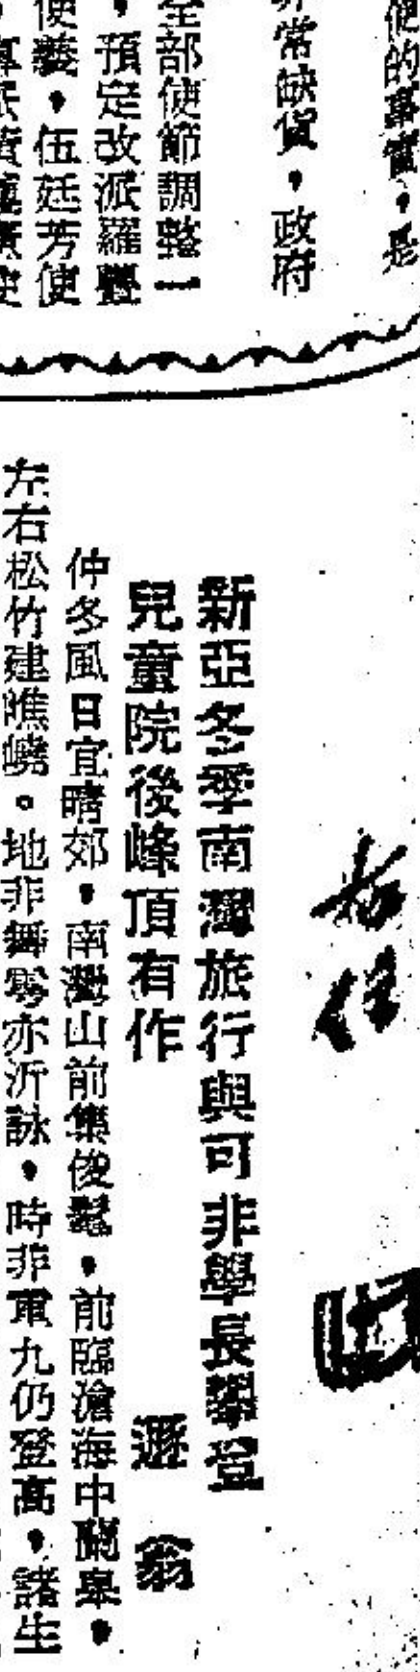 便的事實，是
非常缺貨，政府
全部使節調整一
，預定改派羅豐
使義，伍廷芳使
新亞冬季南灣旅行與可非學長攀登
兒童院後峰頂有作
遯翁
仲冬風日宜晴郊，南灣山前集俊髦，前臨滄海中蘭皋，
左右松竹建嶕嶢。地非舞雩亦沂詠，時非重九仍登高，諸生